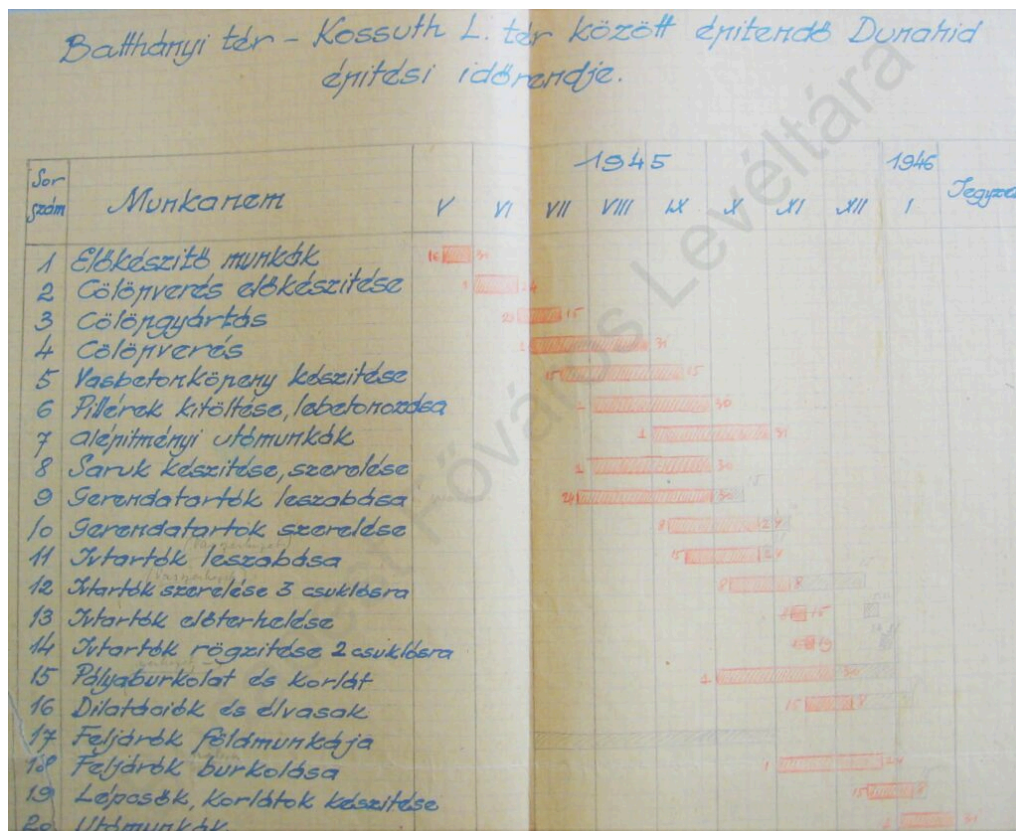 Batthányi tér - Kossuth L. tér között építendő Dunahíd
építési időrendje.
Sor szám Munkanem 1945 1946
V VI VII VIII IX X XI XII I
1 Előkészítő munkák 16 31
2 Cölöpverés előkészítése 1 24
3 Cölöpgyártás 15
4 Cölöpverés 31
5 Vasbetonköpeny készítése 15 15
6 Pillérek kitöltése, lebetonozása 1 30
7 alépítményi utómunkák 1 31
8 Saruk készítése, szerelése 1 30
9 Gerendatartók leszabása 30 15
10 Gerendatartók szerelése 8 24
11 Ívtartók leszabása 15 24
12 Ívtartók szerelése 3 csuklósra 8 8
13 Ívtartók előterhelése 15
14 Ívtartók rögzítése 2 csuklósra
15 Pályaburkolat és korlát 1 30
16 Dilatációk és élvasak 15 8
17 Feljárók földmunkája
18 Feljárók burkolása 1 24
19 Lépcsők, korlátok készítése 15
20 Utómunkák 31
Főváros Levéltára